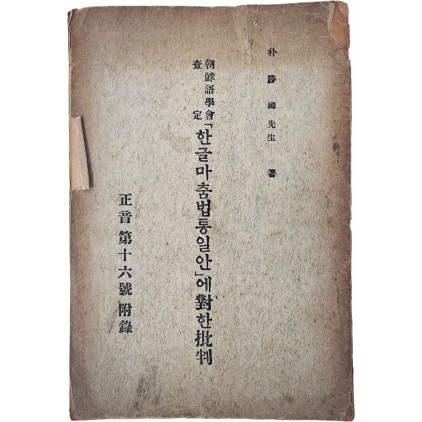 朴勝彬先生 著
朝鮮語學會
査定
「한글마춤법통일안」에對한批判
正音 第十六號 附錄